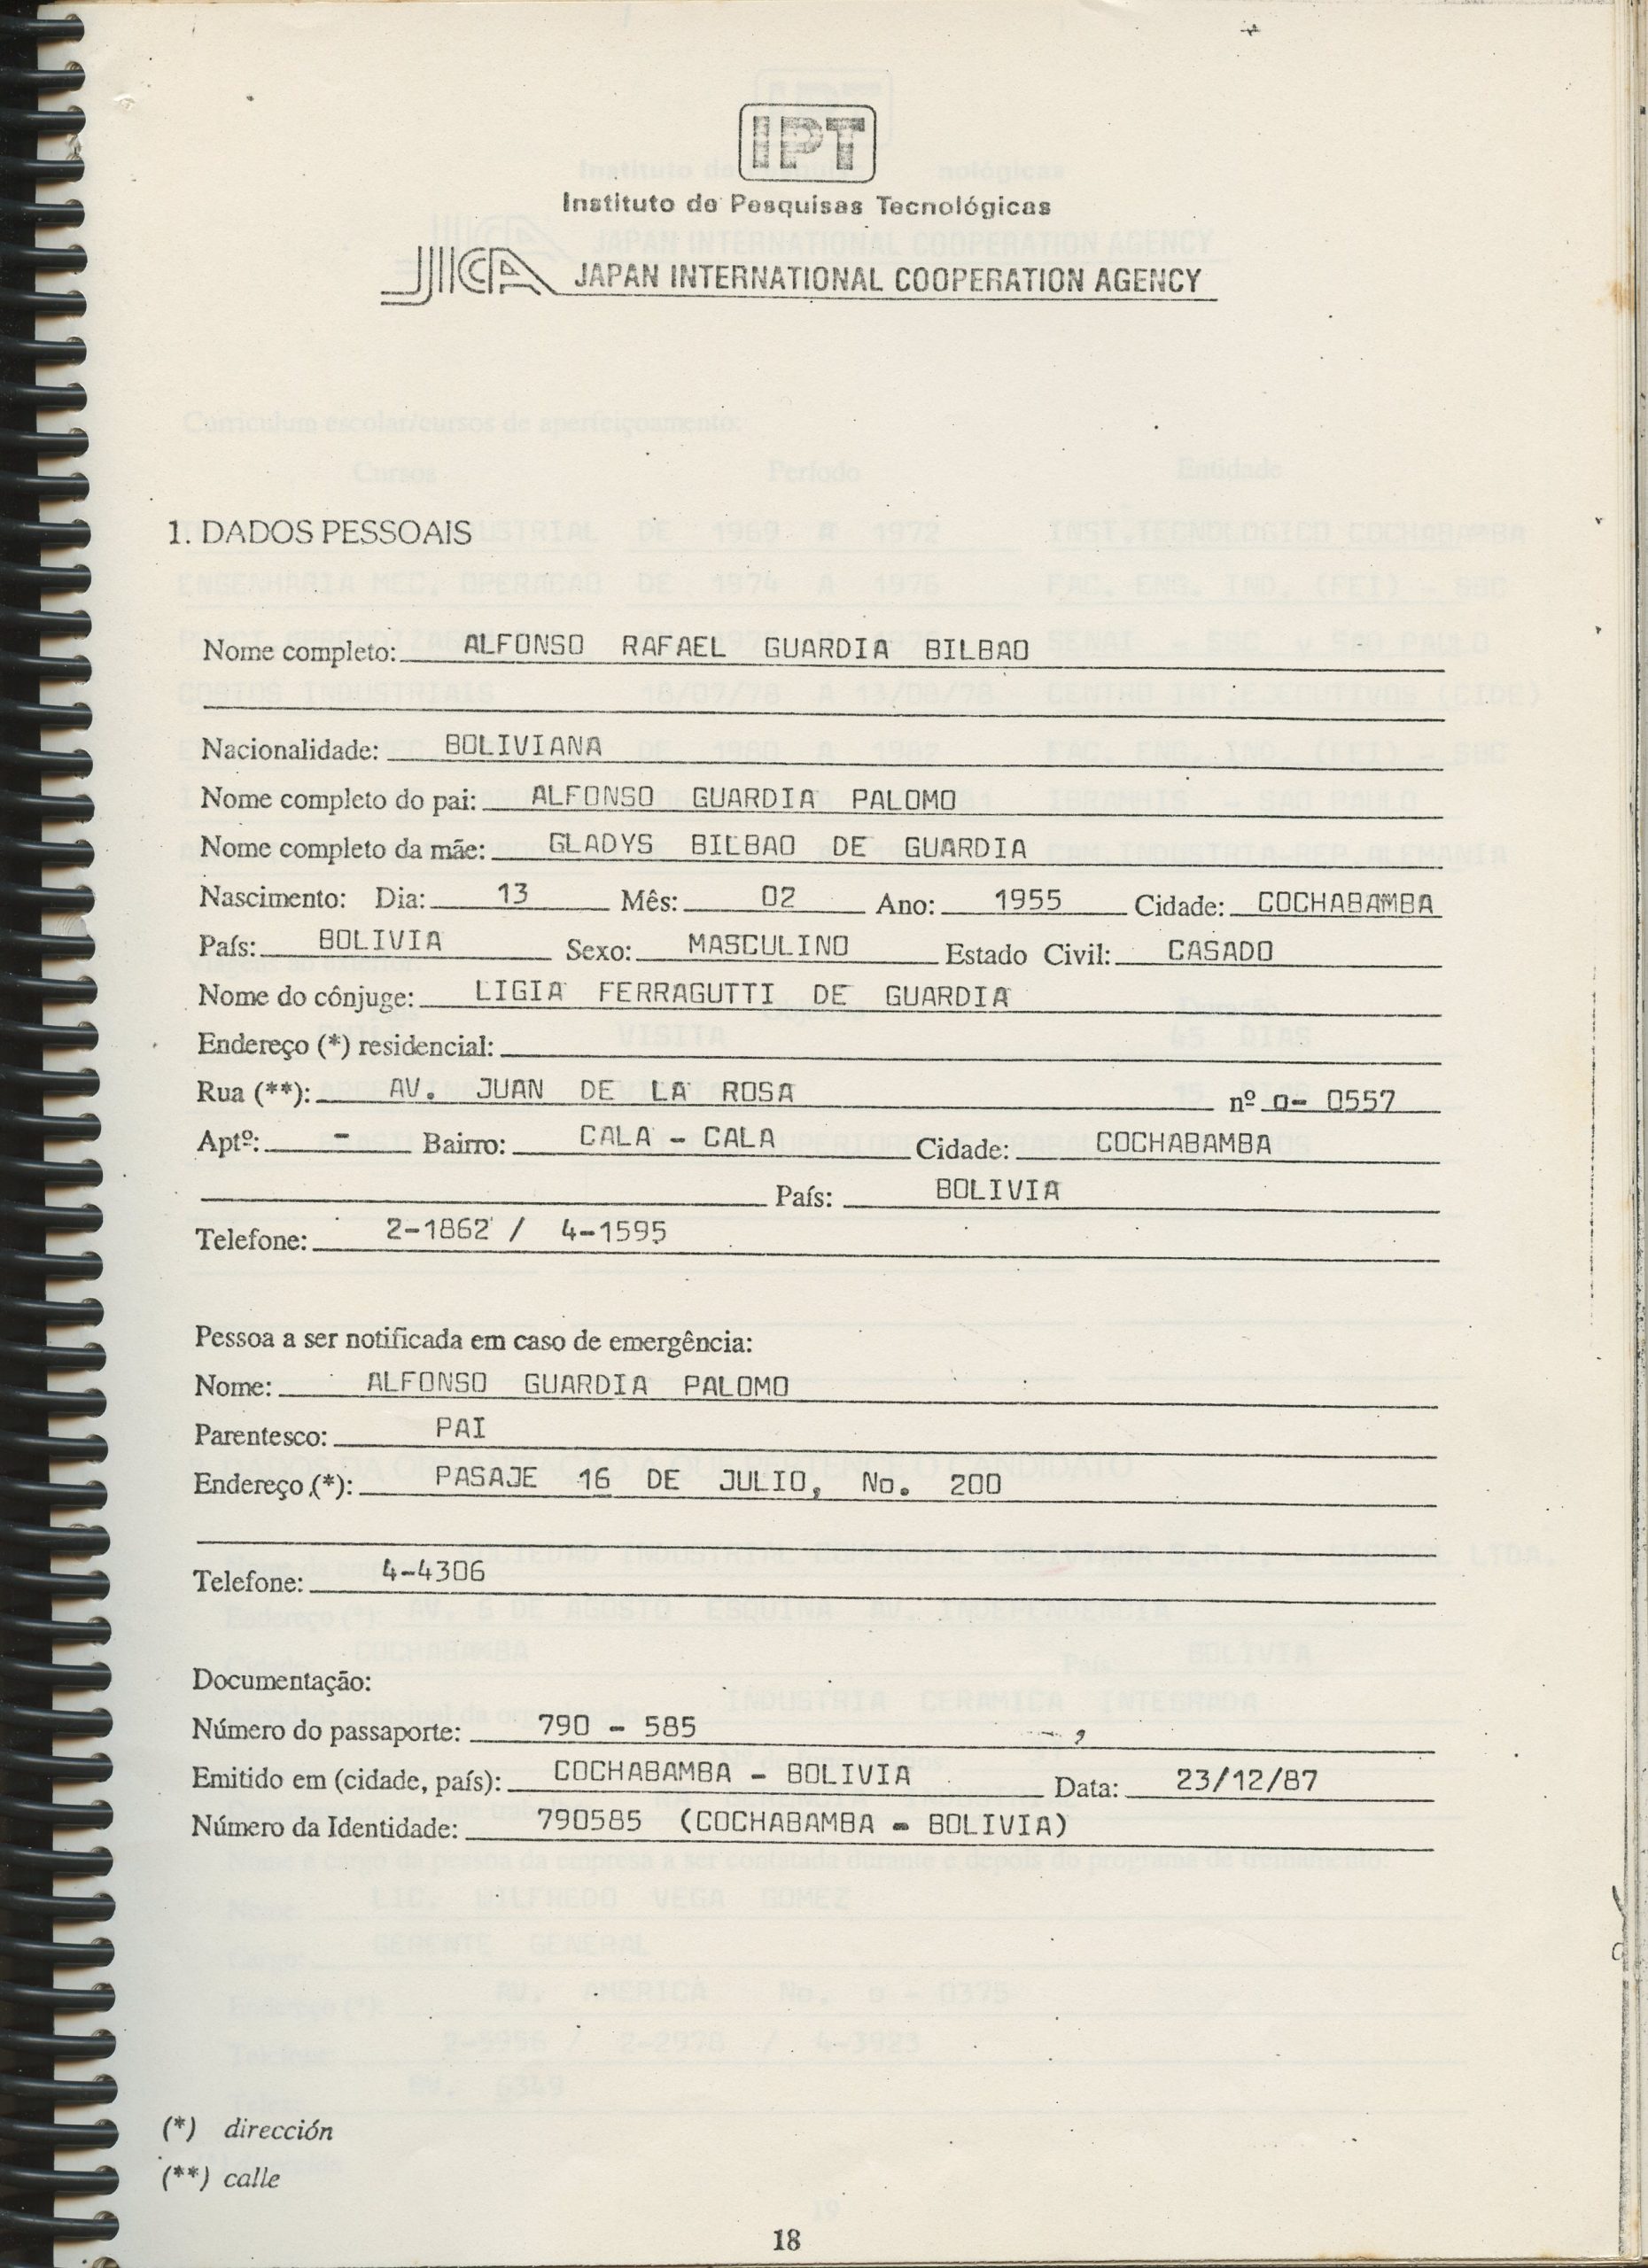 IPT
Instituto de Pesquisas Tecnológicas
JICA JAPAN INTERNATIONAL COOPERATION AGENCY
1. DADOS PESSOAIS
Nome completo: ALFONSO RAFAEL GUARDIA BILBAO
Nacionalidade: BOLIVIANA
Nome completo do pai: ALFONSO GUARDIA PALOMO
Nome completo da mãe: GLADYS BILBAO DE GUARDIA
Nascimento: Dia: 13 Mês: 02 Ano: 1955 Cidade: COCHABAMBA
País: BOLIVIA Sexo: MASCULINO Estado Civil: CASADO
Nome do cônjuge: LIGIA FERRAGUTTI DE GUARDIA
Endereço (*) residencial:
Rua (**): AV. JUAN DE LA ROSA nº o- 0557
Aptº: - Bairro: CALA - CALA Cidade: COCHABAMBA
País: BOLIVIA
Telefone: 2-1862 / 4-1595
Pessoa a ser notificada em caso de emergência:
Nome: ALFONSO GUARDIA PALOMO
Parentesco: PAI
Endereço (*): PASAJE 16 DE JULIO, No. 200
Telefone: 4-4306
Documentação:
Número do passaporte: 790 - 585
Emitido em (cidade, país): COCHABAMBA - BOLIVIA Data: 23/12/87
Número da Identidade: 790585 (COCHABAMBA - BOLIVIA)
(*) dirección
(**) calle
18